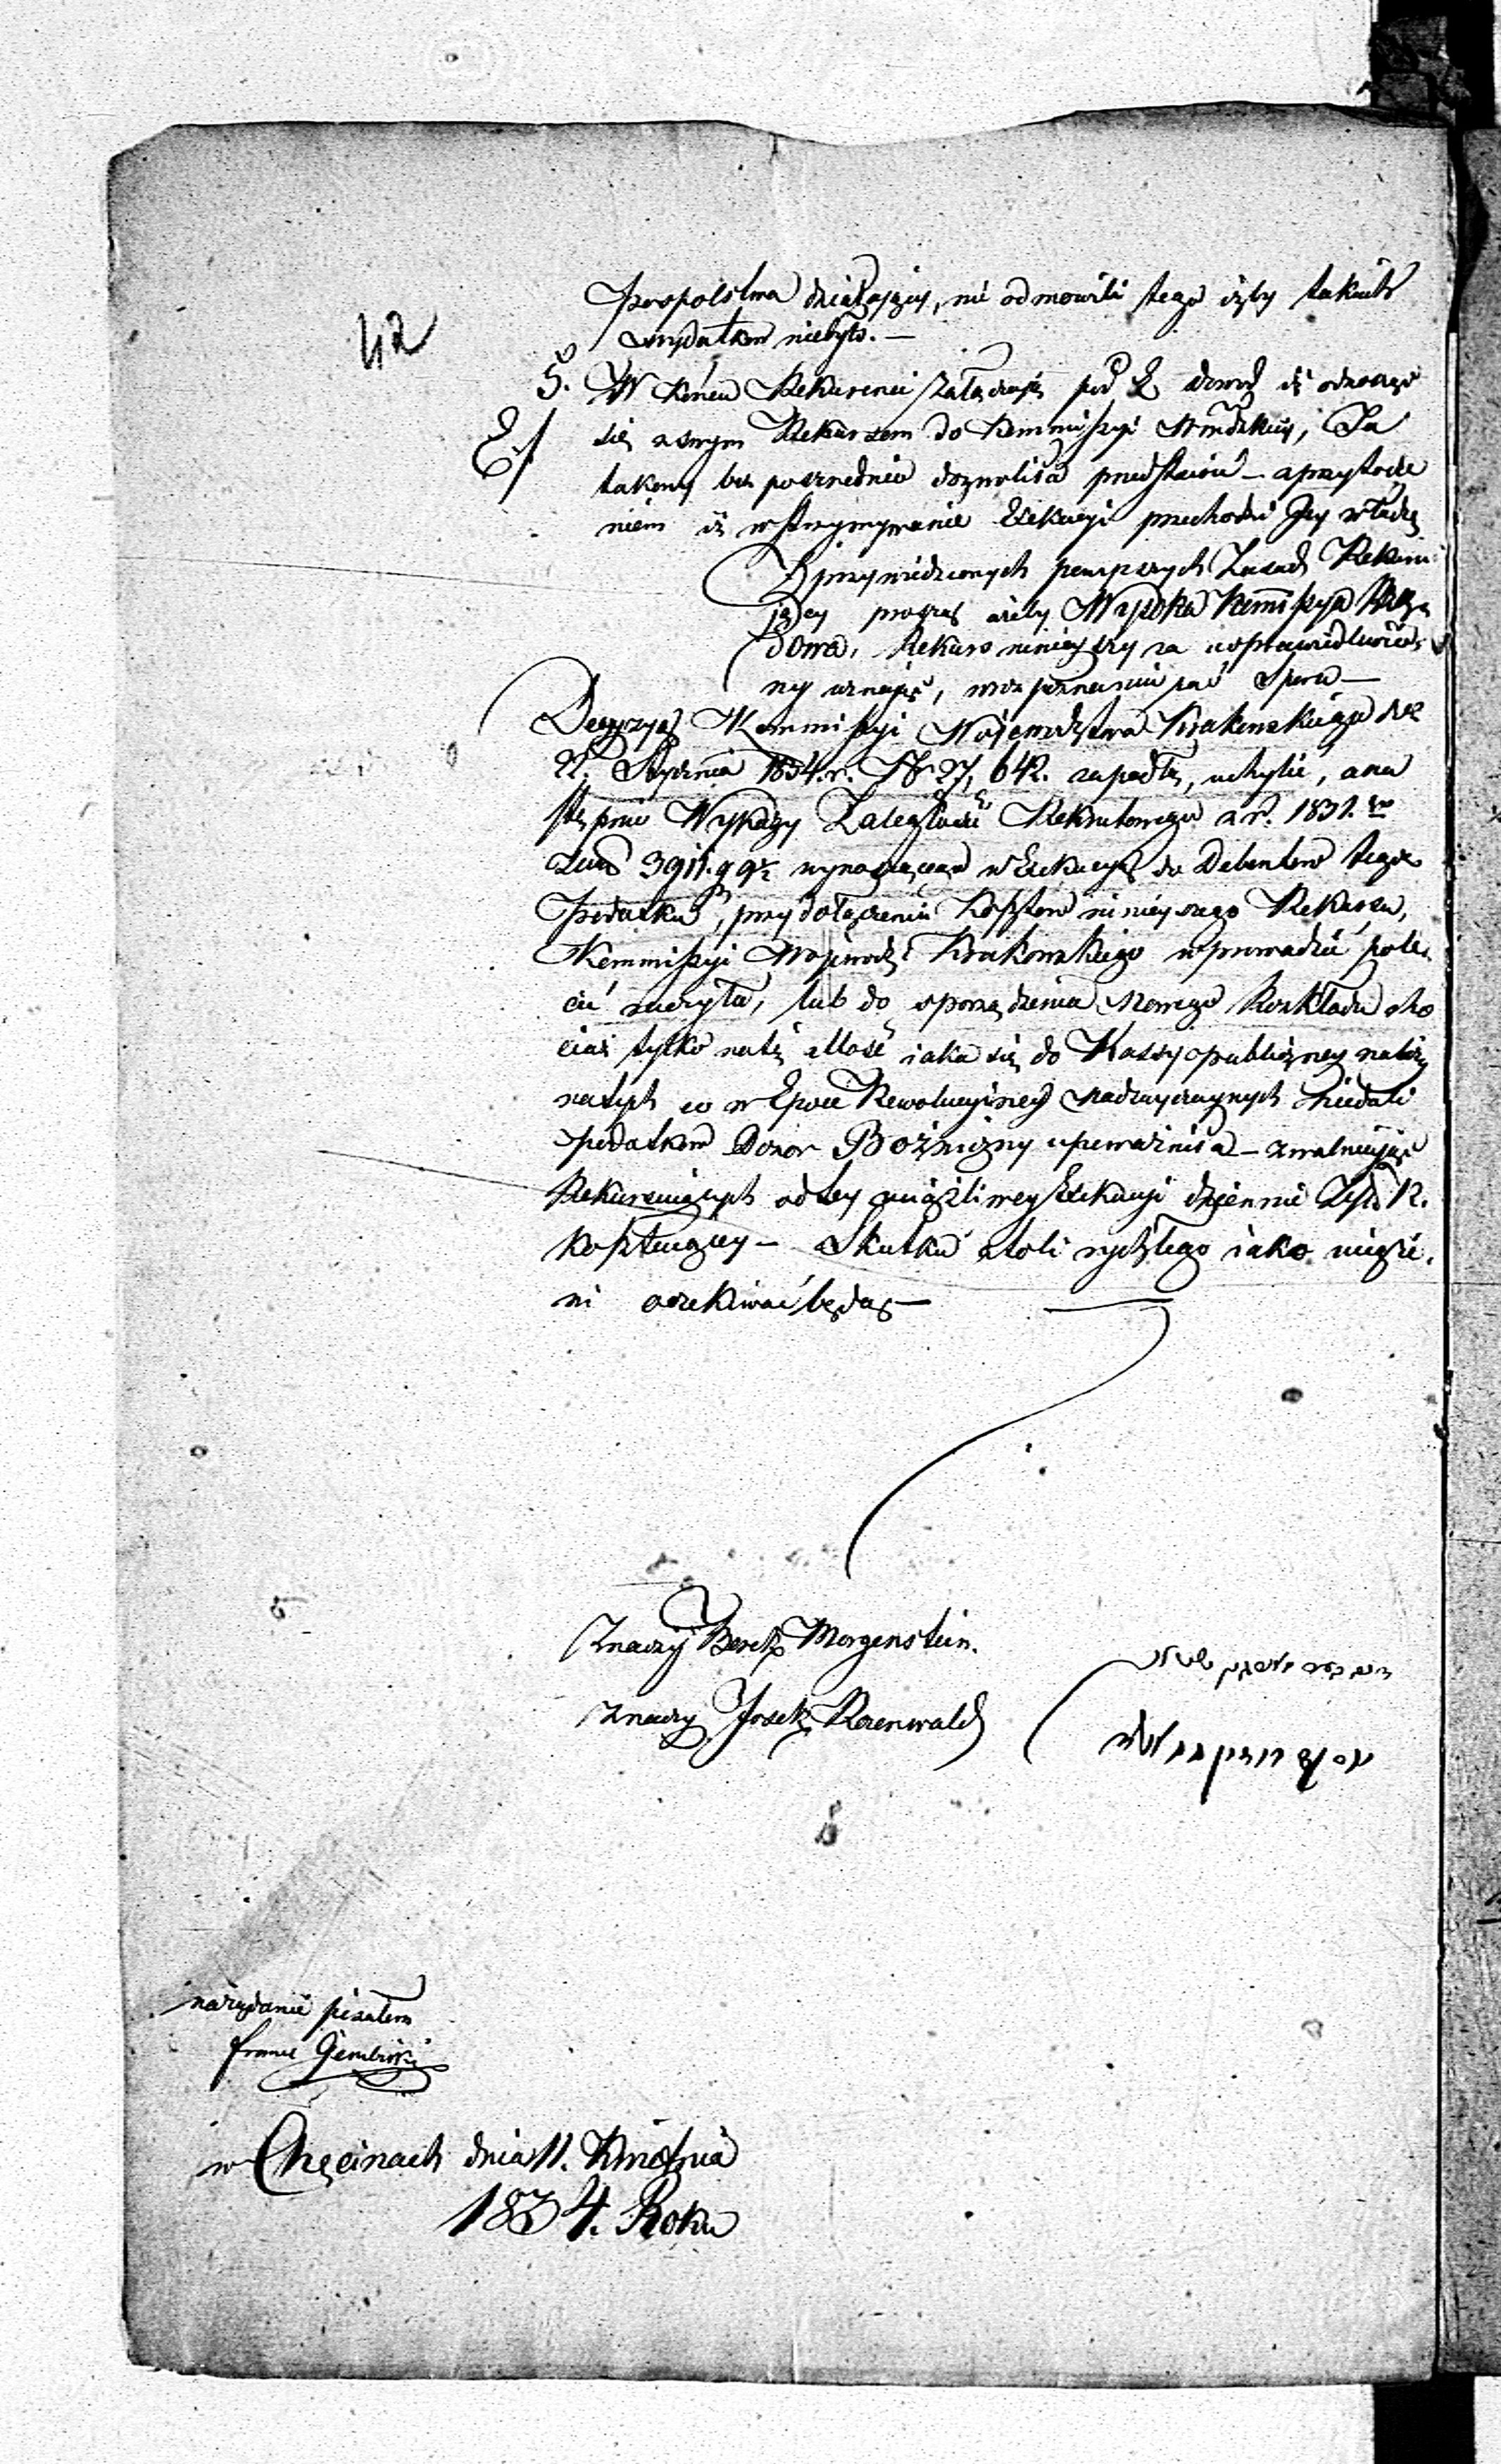 42
Pospolstwa działający, nie odmówili tego iżby takich
wydatków niebyło. —
5. W końcu Rekurenci załączają pod E dowód iż odnosząc
E./ się z swym Rekursem do Kommissyi Wdzkiey, Ta
takowy bez posrednio dozwoliła przedstawić — a przytocze
niem iż wstrzymywanie Exekucyi przechodzi Jey władzę
Z przywiedzionych powyższych Zasad Rekuru
jący proszą ażeby Wysoka Kommissya Rzą
dowa, Rekurs ninieyszy za usprawiedliwio
ny uznając, w rozpoznaniu
Decyzyą Kommissyi Województwa Krakowskiego dnia
22. Stycznia 1834. r. Nr 27,642. zapadłą, uchylić, a na
stępnie Wykazy Zaległości Rekrutowego z r. 1831.
wynoszącego w Exekucyą do Debentów tegoż
Podatku, przy dołączeniu kosztów ninieyszego Rekursu,
Kommissyi Wojewodz: Krakowskiego wprowadzić pole
cić raczyła, lub do sporządzenia nowego Rozkładu cho
ciaż tylko na tę illość iaka się do Kassy publiczney należy
na tych co w Epoce Rewolucyiney nadzwyczaynych niedali
podatków Dozor Bożniczny upoważniła — zwalniając
Rekurujących od tey uciążliwey Exekucyi dziennie Złp: 12.
kosztującey — Skutku
ni oczekiwać będą —
Znaczy Berek Morgenstein.
Znaczy Josek Rozenwald
na żądanie pisałem
Franc Gembicki
w Chęcinach dnia 11. Kwietnia
1834. Roku